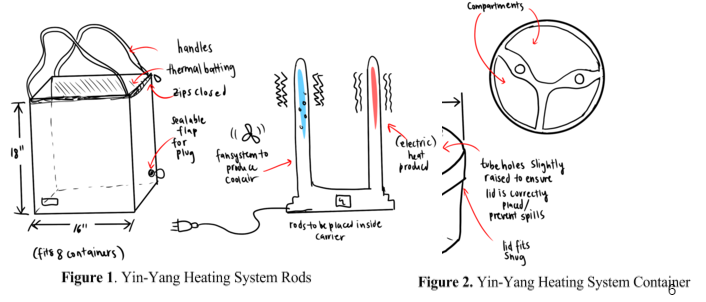 handles
thermal batting
zips closed
sealable
flap
for
plug
18"
16"
(fits 8 containers)
fan system to
produce
cool air
(electric)
heat
produced
rods to be placed inside
carrier
Figure 1. Yin-Yang Heating System Rods
compartments
tube holes slightly
raised to ensure
lid is correctly
placed/
prevent spills
lid fits
snug
Figure 2. Yin-Yang Heating System Container
6